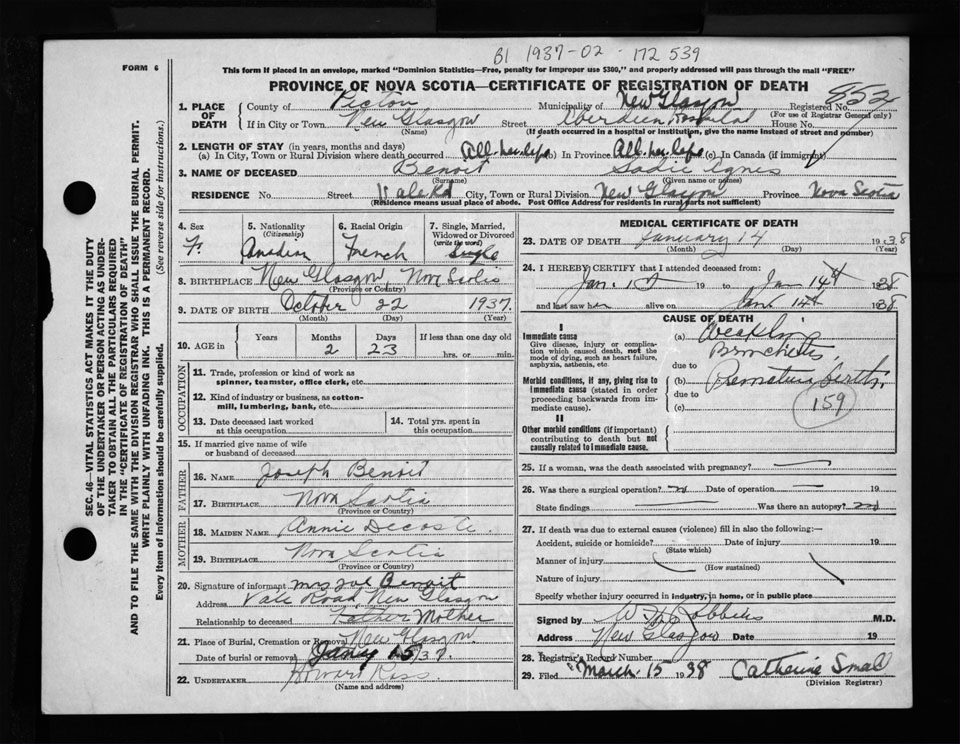 B1 1937-02-172539
FORM 6
This form if placed in an envelope, marked "Dominion Statistics—Free, penalty for improper use $300," and properly addressed will pass through the mail "FREE"
PROVINCE OF NOVA SCOTIA—CERTIFICATE OF REGISTRATION OF DEATH
852
1. PLACE OF DEATH County of Pictou Municipality of New Glasgow Registered No.
(For use of Registrar General only)
If in City or Town New Glasgow Street Aberdeen Hospital House No.
(Name) (If death occurred in a hospital or institution, give the name instead of street and number)
2. LENGTH OF STAY (in years, months and days)
(a) In City, Town or Rural Division where death occurred All her life (b) In Province All her life (c) In Canada (if immigrant)
3. NAME OF DECEASED Benoit Sadie Agnes
(Surname) (Given name or names)
RESIDENCE No. Street Vale Rd City, Town or Rural Division New Glasgow Province Nova Scotia
(Residence means usual place of abode. Post Office Address for residents in rural parts not sufficient)
4. Sex 5. Nationality (Citizenship) 6. Racial Origin 7. Single, Married, Widowed or Divorced (write the word)
F. Canadian French Single
8. BIRTHPLACE New Glasgow, Nova Scotia
(Province or Country)
9. DATE OF BIRTH October 22 1937
(Month) (Day) (Year)
10. AGE in Years Months Days If less than one day old
2 23 hrs. or min.
OCCUPATION
11. Trade, profession or kind of work as spinner, teamster, office clerk, etc.
12. Kind of industry or business, as cotton-mill, lumbering, bank, etc.
13. Date deceased last worked at this occupation
14. Total yrs. spent in this occupation
15. If married give name of wife or husband of deceased
FATHER
16. NAME Joseph Benoit
17. BIRTHPLACE Nova Scotia
(Province or Country)
MOTHER
18. MAIDEN NAME Annie Decoste
19. BIRTHPLACE Nova Scotia
(Province or Country)
20. Signature of informant Mrs Joe Benoit
Address Vale Road New Glasgow
Relationship to deceased Father Mother
21. Place of Burial, Cremation or Removal New Glasgow
Date of burial or removal Jany 15 37
22. UNDERTAKER Howard
(Name and address)
MEDICAL CERTIFICATE OF DEATH
23. DATE OF DEATH January 14 1938
(Month) (Day) (Year)
24. I HEREBY CERTIFY that I attended deceased from:
Jan. 19 to Jan 14th 1938
and last saw her alive on Jan 14th 1938
CAUSE OF DEATH
I
Immediate cause
Give disease, injury or complication which caused death, not the mode of dying, such as heart failure, asphyxia, asthenia, etc.
(a)
Bronchitis
due to
Morbid conditions, if any, giving rise to immediate cause (stated in order proceeding backwards from immediate cause).
(b) Premature birth
due to
(c) 159
II
Other morbid conditions (if important) contributing to death but not causally related to immediate cause.
25. If a woman, was the death associated with pregnancy?
26. Was there a surgical operation? no Date of operation 19
State findings Was there an autopsy? no
27. If death was due to external causes (violence) fill in also the following:—
Accident, suicide or homicide? Date of injury 19
(State which)
Manner of injury
(How sustained)
Nature of injury
Specify whether injury occurred in industry, in home, or in public place
Signed by M.D.
Address New Glasgow Date 19
28. Registrar's Record Number
29. Filed March 15 1938 Catherine Small
(Division Registrar)
SEC. 46—VITAL STATISTICS ACT MAKES IT THE DUTY
OF THE UNDERTAKER OR PERSON ACTING AS UNDER-
TAKER TO OBTAIN ALL THE PARTICULARS REQUIRED
IN THE "CERTIFICATE OF REGISTRATION OF DEATH"
AND TO FILE THE SAME WITH THE DIVISION REGISTRAR WHO SHALL ISSUE THE BURIAL PERMIT.
WRITE PLAINLY WITH UNFADING INK. THIS IS A PERMANENT RECORD.
Every item of information should be carefully supplied. (See reverse side for instructions.)